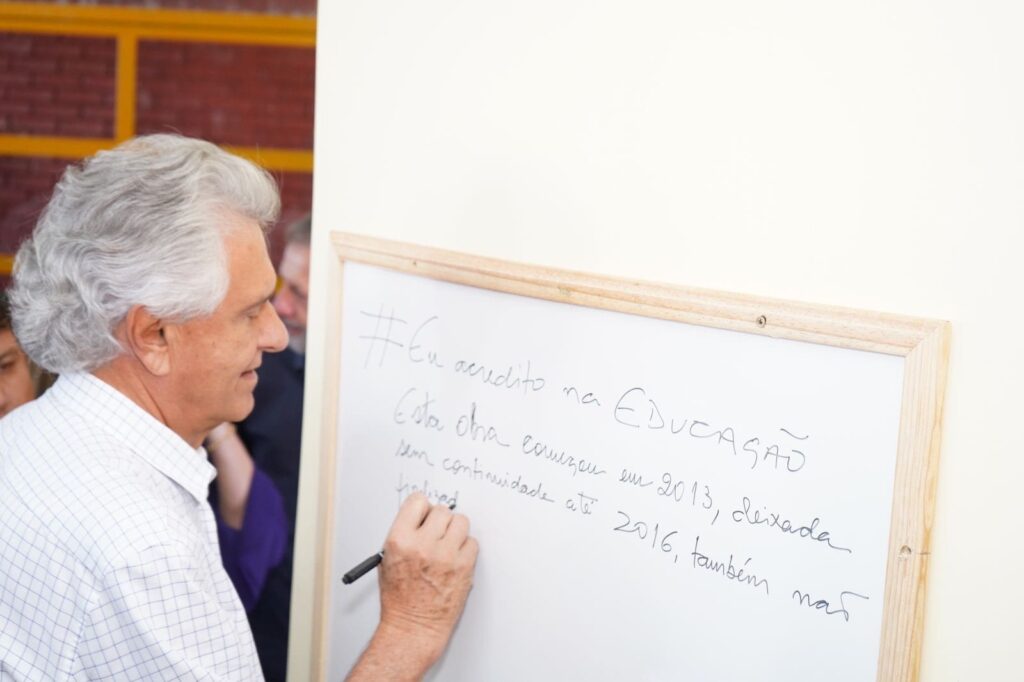 #Eu acredito na EDUCAÇÃO
Esta obra começou em 2013, deixada
sem continuidade até 2016, também não
finalizad